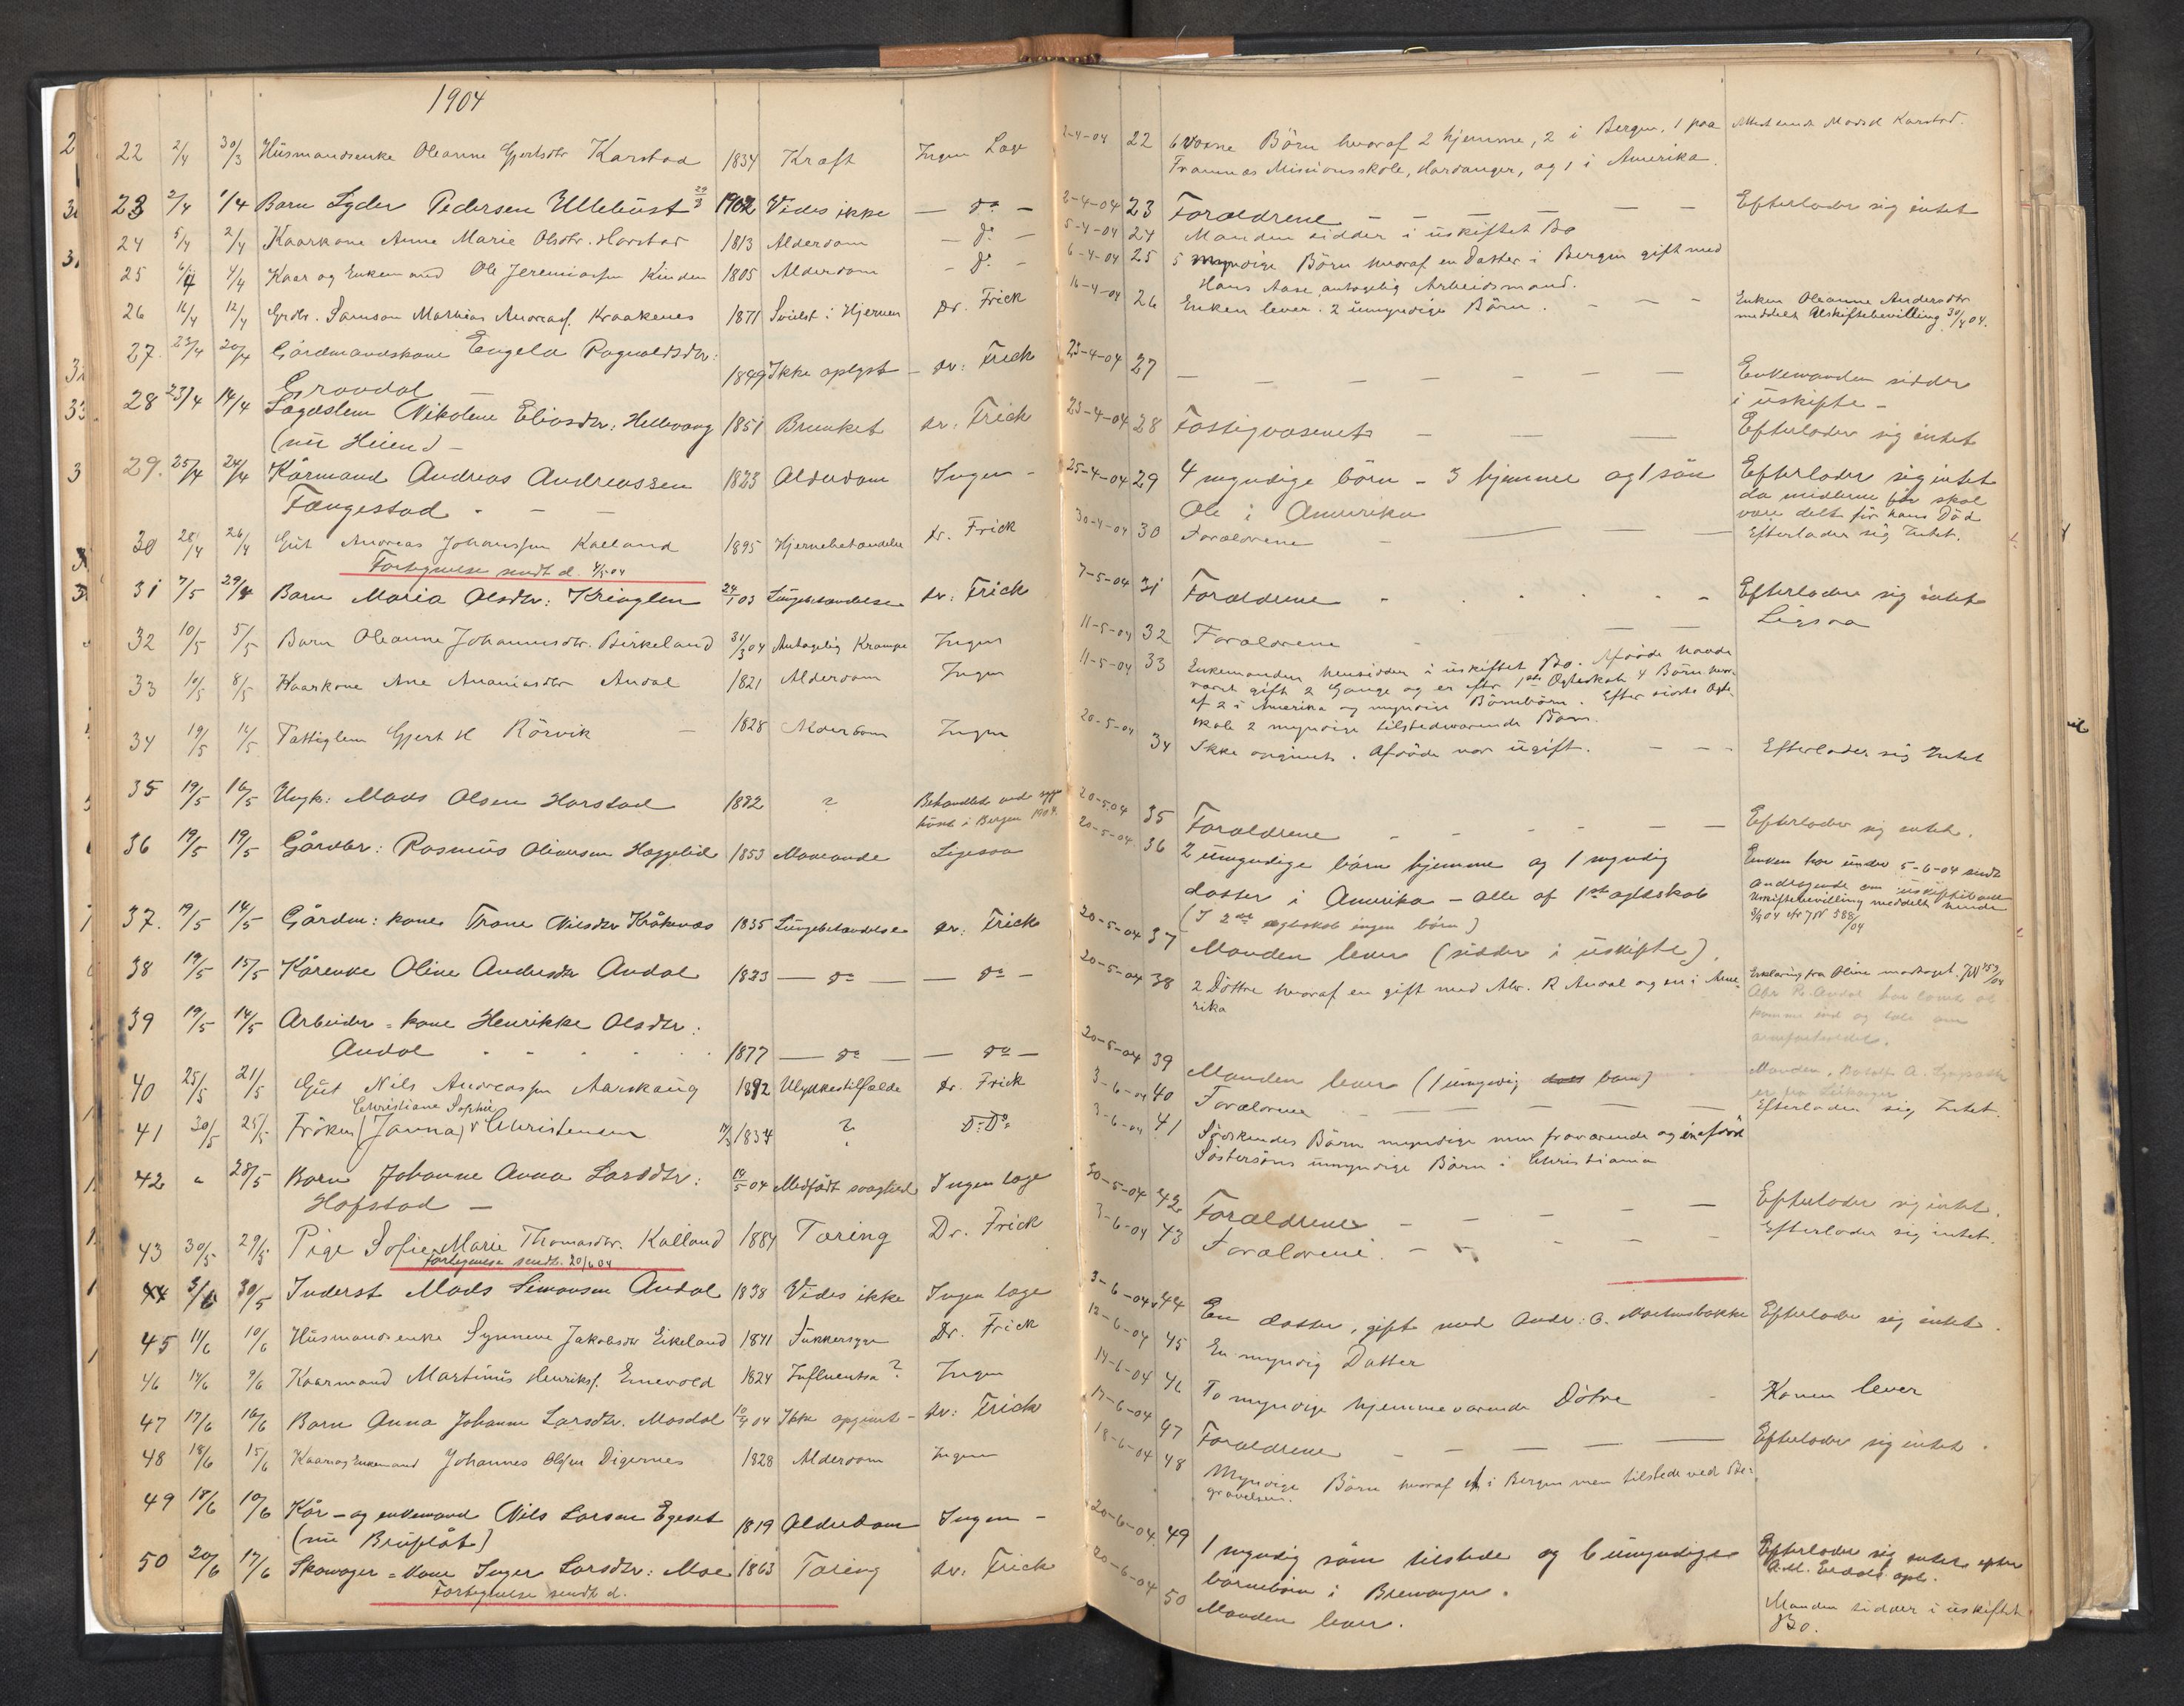 1904
22 2/4 30/3 Husmandsenke Oleanne Gjertsdtr Karstad 1834 Kræft Ingen Læge
23 2/4 1/4 Barn Lyder Pedersen Ullebust 29/3 1902 Vides ikke — do —
24 5/4 2/4 Kaarkone Anne Marie Olsdtr. Harstad 1813 Alderdom — do —
25 6/4 4/4 Kaar og Enkemand Ole Jeremiassen Kinden 1805 Alderdom — do —
26 16/4 12/4 Grdbr. Samson Mathias Andreass. Kraakenes 1871 Svulst i Hjernen Dr. Frick
27. 23/4 20/4 Gårdmandskone Engela Ragnvaldsdtr:
Grovdal 1849 Ikke oplyst — dr: Frick
28 23/4 14/4 Lægdslem Nikoline Eliasdtr: Hellevang 1851 Brunket dr: Frick
(nu Heien) —
29. 25/4 24/4 Kårmand Andreas Andreassen 1823 Alderdom Ingen —
Fængestad - — —
30 28/4 26/4 Gut Andreas Johanssen Kalland 1895 Hjernebetændelse Dr. Frick
Fortegnelse sendt d. 4/5 04
31 7/5 29/4 Barn Maria Olsdtr: Kringlen 24/1 03 Lungebetændelse dr: Frick
32 10/5 5/5 Barn Oleanne Johannesdtr. Birkeland 31/3 04 Antagelig Krampe Ingen
33 10/5 8/5 Kaarkone Ane Ananiasdtr Andal 1821 Alderdom Ingen
34 19/5 12/5 Fattiglem Gjert H Rörvik — 1828 Alderdom Ingen
35 19/5 16/5 Ungk: Mads Olsen Harstad 1882 ? Behandlet ved syge
huset i Bergen 1904.
36 19/5 19/5 Gårdbr: Rasmus Oliversen Haggelid 1853 Mavevonde Ligesaa
37. 19/5 14/5 Gårdm: kone Trone Nilsdtr Kråkenæs 1835 Lungebetændelse dr: Frick
38 19/5 15/5 Kårenke Oline Andersdtr Andal 1823 — do — — do —
39 19/5 14/5 Arbeider = kone Henrikke Olsdtr:
Andal - - - - - 1877 — do — — do —
40 25/5 21/5 Gut Nils Andreassen Aarskaug 1892 Ulykkestilfælde Dr. Frick
Christiane Sophie
41 30/5 25/5 Fröken (Janna) v Christensen 1834 ? Do Do
42 " 28/5 Barn Johanne Anna Larsdtr: 14/5 04 Medfødt svaghed Ingen læge
Hofstad —
43 30/5 29/5 Pige Sofie Marie Thomasdtr. Kalland 1884 Tæring Dr. Frick
Fortegnelse sendt. 20/6 04
44 3/6 30/5 Inderst Mads Simonsen Andal 1838 Vides ikke Ingen læge
45 11/6 10/6 Husmandsenke Synneve Jakobsdtr Eikeland 1841 Sukkersyge Dr. Frick
46 14/6 9/6 Kaarmand Martinus Henriks. Emevold 1824 Influentsa? Ingen
47 17/6 16/6 Barn Anna Johanne Larsdtr. Mosdal 10/4 04 Ikke opgivet — dr: Frick
48 18/6 15/6 Kaar og Enkemand Johannes Olsen Digernes 1828 Alderdom Ingen
49 18/6 10/6 Kår - og enkemand Nils Larsen Egeset 1819 Alderdom Ingen —
(nu Bruflåt)
50 20/6 17/6 Skomager = kone Inger Larsdtr: Moe 1863 Tæring dr: Frick
Fortegnelse sendt d.
2-4-04 22 6 voxne Börn hvoraf 2 hjemme, 2 i Bergen, 1 paa
Framnæs Missionsskole, Hardanger, og 1 i Amerika.
2-4-04 23 Forældrene — — — — — — Efterlader sig intet
5-4-04 24 Manden sidder i uskiftet Bo
6-4-04 25 5 myndige Börn hvoraf en Datter i Bergen gift med
Hans Aase, antagelig Arbeidsmand.
16-4-04 26 Enken lever. 2 umyndige Börn. - — — Enken Oleanne Andersdtr
meddelt Uskiftebevilling 30/4 04.
23-4-04 27 — — — — — — — Enkemanden sidder
i uskifte —
23-4-04 28 Fattigvæsenets — — — Efterlader sig intet
25-4-04 29 4 myndige börn - 3 hjemme og 1 sön Efterlader sig intet
Ole i Amerika da midlerne før skal
være delt för hans Död
30-4-04 30 Forældrene - — — Efterlader sig Intet.
7-5-04 31 Forældrene - - - - - Efterlader sig intet
Ligsaa
11-5-04 32 Forældrene — —
11-5-04 33 Enkemanden hensidder i uskiftet Bo. Afdöde havde
været gift 2 Gange og er efter 1ste Ægteskab 4 Börn hvor-
af 2 i Amerika og myndige Börnebörn. Efter sidste Ægte-
skab 2 myndige tilstedeværende Börn.
20-5-04 34 Ikke opgivet. Afdöde var ugift. — - - Efterlader sig Intet
20-5-04 35 Forældrene - - - - — — Efterlader sig intet.
20-5-04. 36 2 umyndige börn hjemme og 1 myndig
datter i Amerika - alle af 1ste ægteskab
(I 2det ægteskab ingen börn)
Enken har under 5-6-04 sendt
andragende om
Uskiftebevilling meddelt hende
20-5-04 37 Manden lever (sidder i uskifte).
20-5-04 38 2 Döttre hvoraf en gift med Abr. R Andal og en i Ame-
rika
Erklæring fra Oline modtaget. JN 753/04
20-5-04 39 Manden lever (1 umyndig barn)
3-6-04 40 Forældrene — — — — — Efterlader sig Intet.
3-6-04 41 Södskendes Börn myndige men fraværende og en afdöd
Söstersöns umyndige Börn i Christiania
30-5-04 42 Forældrene - — — — — Efterlader sig intet.
3-6-04 43 Forældrene. - - - — — Efterlader sig intet.
3-6-04 44 En datter, gift med Andr: O. Mortensbakke Efterlader sig intet.
12-6-04 45 En myndig Datter
14-6-04 46 To myndige hjemmeværende Dötre - Konen lever
17-6-04 47 Forældrene — — — — — Efterlader sig intet.
18-6-04 48 Myndige Börn hvoraf et i Bergen men tilstede ved Be-
gravelsen.
20-6-04. 49 1 myndig sönn tilstede og 6 umyndige Efterlader sig intet efter
börnebörn i Bremanger.
20-6-04 50 Manden lever. Manden sidder i uskiftet
Bo.